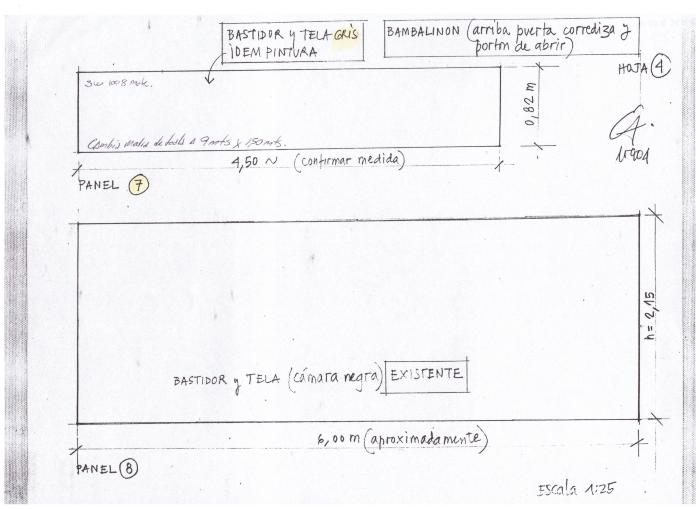 BASTIDOR y TELA GRIS
IDEM PINTURA
BAMBALINON (arriba puerta corrediza y
portón de abrir)
HOJA 4
0,82 m
4,50 ~ (confirmar medida)
PANEL 7
h = 2,15
BASTIDOR y TELA (cámara negra) EXISTENTE
6,00 m (aproximadamente)
PANEL 8
Escala 1:25